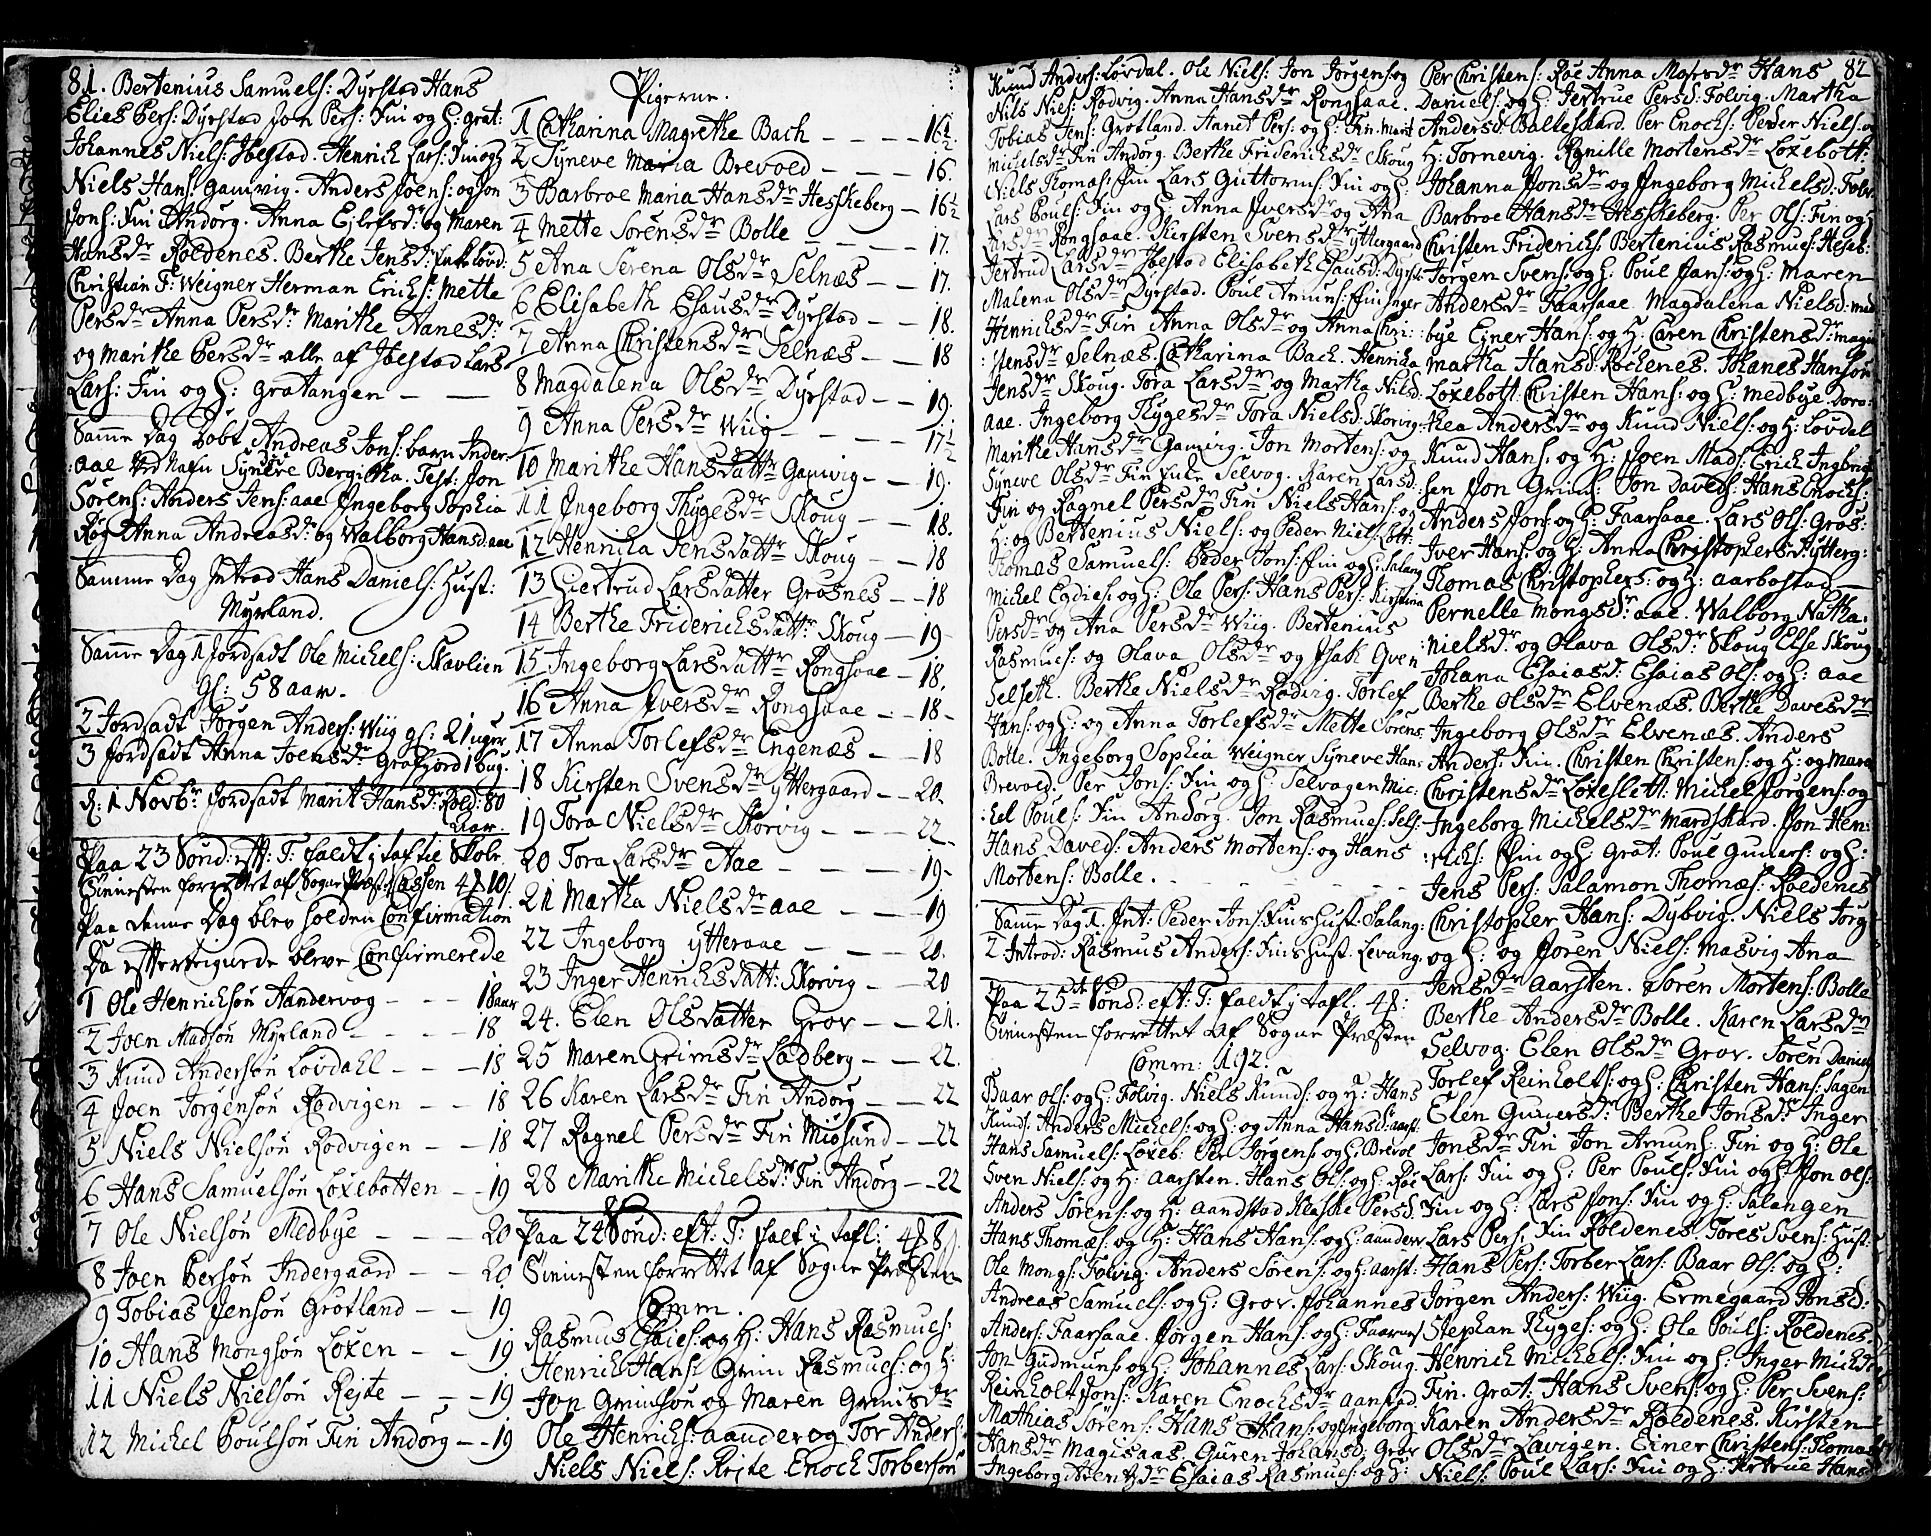 81. Bertenius Samuels: Dyrstad Hans
Elies Pers: Dyrstad Jon Pers: Fin og H: grat:
Johannes Niels: Ibestad. Henrich Lars: Fin og H
Niels Hans: Gamvig. Anders Joens: og Jon
Jons: Fin Andorg. Anna Ejlefsdr og Maren
Hansdr Roldenes. Berthe Jensdr
Christian F: Weigner Herman Erichs: Mette
Persdr Anna Persdr Marithe Hanesdr
og Marithe Persdr alle af Ibestad Lars
Lars: Fin og H: Gratangen
Samme Dag Døbt Andreas Jons: barn Inder
:aae ved Nafn Syneve Bergitha. Test: Jon
Sørens: Anders Jens: aae Ingeborg Sophia
Røg Anna Andreasdr og Walborg Hansd: aae
Samme Dag Introd Hans Daniels: Hust:
Myrland.
Samme Dag 1 Jordsadt Ole Michels: Skavlien
gl: 58 aar.
2 Jordsadt Jørgen Anders: Wiig gl: 21 uger
3 Jordsadt Anna Joensdr Grafjord 1 aug:
d: 1 Novbr Jordsadt Marit Hansdr Rold: 80
Aar.
Paa 23 Sönd: eft: T: faldt i taflle
Tienesten forrettet af Sogne Præst: Cassen
Paa denne Dag blev holden Confirmation
Da effterskrevne bleve Confirmerede
1 Ole Henrichsøn Aandervog - - - 18 aar
2 Joen Madsøn Myrland - - 18
3 Knud Andersøn Løvdahl - - - 18
4 Joen Jørgensøn Rødvigen - - 18
5 Niels Nielsøn Rødvigen - - 18
6 Hans Samuelsøn Loxebotten - - 19
7 Ole Nielsøn Medbye - - - 20
8 Joen Persøn Indergaard - - 20
9 Tobias Jensøn Grotland - - - 19
10 Hans Mongsøn Loxen - - 19
11 Niels Nielsøn Rejte - - - 19
12 Michel Poulsøn Fin Andorg - - 19
Pigerne.
1 Catharina Magrethe Bach - - - 16½
2 Syneve Maria Brevoed - - - 16.
3 Barbroe Maria Hansdr Hesskeberg - 16½
4 Mette Sørensdr Bolle - - - - 17.
5 Ana Serena Olsdr Selnæs - - 17.
6 Elisabeth Esausdr Dyrstad - - 18.
7 Anna Christensdr Selnæs - - 18
8 Magdalena Olsdr Dyrstad - - 19
9 Anna Persdr Wiig - - - - 17½
10 Marithe Hansdattr Gamvig - - 19.
11 Ingeborg Thygesdr Skoug - - 18.
12 Hennika Jensdattr Skoug - - 18
13 Giertrud Larsdatter Grosnes - - 18
14 Berthe Friderichsdattr Skoug - 19
15 Ingeborg Larsdattr Rongsaae - 18.
16 Anna Iversdr Rongsaae - - 18
17 Anna Torlefsdr Engenæs - 18
18 Kirsten Svensdr Yttergaard - - 20.
19 Tora Nielsdr Skorvig - - - 22
20 Tora Larsdr Aae - - - 19
21 Martha Nielsdr aae - - - 19
22 Ingeborg ytteraae - - - 20.
23 Inger Henrichsdatt: Skorvig - - 20
24. Elen Olsdatter Grov - - 21.
25 Maren Grimsdr Ladberg - - 22.
26 Karen Larsdr Fin Andorg - - 22
27 Ragnel Persdr Fin Miøsund - - 22
28 Marithe Michelsdr Fin Andorg - - 22
Paa 24 Sönd: eft: T: falt i tafl: 4
Tienesten forrettet af Sogne Præsten
Comm.
Rasmus Esaies: og H: Hans Rasmus:
Henrich Hans: Grim Rasmus: og H:
Jon Grimsøn og Maren Grimsdr
Ole Henrichs: aanderog Tor Anders:
Niels Niels: Rejte Enoch Torbersøn
Knud Anders: Løvdal. Ole Niels: Jon Jørgens: og
Nils Niels: Rødvig. Anna Hansdr Rongsaae.
Tobias Jens: Grotland. Aanet Pers: og H: Fin Marit
Michelsdr Fin Andorg. Berthe Friderichsdr Skoug
Niels Thomas: Fin Lars Guttorms: Fin og H:
Lars Pouls: Fin og H: Anna Iversdr og Ana
Larsdr Rongsaae. Kirsten Svensdr Yttergaard
Jertrud Larsdr Ibestad Elisabeth Esausdr Dyrst:
Malena Olsdr Dyrstad. Poul Amuns: Fin Inger
Henrichsdr Fin Anna Olsdr og Anna Chri:
:stensdr Selnæs. Catharina Bach. Hennika
Jensdr Skoug. Tora Larsdr og Martha Nilsd:
aae. Ingeborg Thygesdr Tora Nielsd: Skorvig
Marithe Hansdr Gamvig. Jon Mortens: og
Syneve Olsdr Fin Selvog. Karen Larsd:
Fin og Ragnel Persdr Fin Niels Hans: og
H: og Bertenius Niels: og Peder Niels:
Thomas Samuels: Peder Jons: Fin og H: Salang
Michel Egdies: og H: Ole Pers: Hans Pers: Kirstina
Persdr og Ana Persdr Wiig. Bertenius
Rasmus: og Olava Olsdr og Isak Qven
Selseth. Berthe Nielsdr Rødvig. Torlef
Hans: og H: og Anna Torlefsdr Mette Sørens
Bolle. Ingeborg Sophia Weigner Syneve Hans
Brevoed. Per Jons: Fin og H: Selvogen Mic:
:hel Pouls: Fin Andorg. Jon Rasmus: Sels:
Hans Daveds: Anders Mortens: og Hans
Mortens: Bolle.
Samme Dag 1. Int: Peder Jons: Fins Hust: Salang:
2 Introd: Rasmus Anders: Fins Hust: Levang.
Paa 25de Sönd: eft: T: faldt i tafl. 4
Tienesten forrettet af Sogne Præsten
Comm: 192.
Baar Ols: og H: Folvig. Niels Knuds: og H: Hans
Knuds: Anders Michels: og H: og Anna Hansd: aarst:
Hans Samuels: Loxeb: Per Jørgens: og H: Brevoe
Sven Niels: og H: Aarsten. Hans Ols: og H: Røe
Anders Sørens: og H: Aandstad Persd:
Hans Thomæs: og H: Hans Hans: og H: aanderv
Ole Mongs: Folvig. Anders Sørens: og H: aarst:
Andreas Samuels: og H: Grov. Johannes
Anders: Faarsaae. Jørgen Hans: og H: Faarsaae
Jon Gudmuns: og H: Johannes Lars: Skoug.
Reinholt Jons: Karen Enochsdr aanstad
Mathias Sørens: Hans Hans: og Ingeborg
Hansdr Magisaas. Guren Johansd: Grov
Ingeborg Esaias Rasmus: og H:
82
Per Christens: Røe Anna Mogensdr Hans
Daniels: og H: Jertrue Persd: Folvig. Martha
Andersd: Baltesgaard. Per Enochs: Peder Niels: og
H: Tornevig. Rønille Mortensdr Loxebott:
Johanna Jonsdr og Ingeborg Michelsd: Folv:
Barbroe Hansdr Hesskeberg. Per Ols: Fin og H
Christen Friderichs: Bertenius Rasmus: Hesseb:
Jørgen Svens: og H: Poul Hans: og H: Maren
Andersdr Faarsaae Magdalena Nielsd: Med
bye Ejner Hans: og H: Caren Christensdr
Martha Hansd: Rochenes. Johanes Hansøn
Loxebott. Christen Hans: og H: Medbye. Doro:
:thea Andersdr og Knud Niels: og H: Løvdal
Knud Hans: og H: Joen Mads: Erich Ingbrig
sen Jon Grims: Jon Daveds: Hans Enochs:
Anders Jons: og H: Faarsaae. Lars Ols: Gros:
Iver Hans: og H: Anna Christophersd: ytterg:
Thomas Christophers: og H: Aarbostad
Pernelle Mongsdr aae. Walborg Natha:
:nielsdr og Olava Olsdr Skoug Else Skoug
Johana Esaiasd: Esaias Ols: og H: aae
Berthe Olsdr Elvenæs. Berthe Davesdr
Ingeborg Olsdr Elvenæs. Anders
Anders: Fin. Christen Christens: og H: og Mara
Christensdr Loxeslett. Michel Jørgens: og
Ingeborg Michelsdr Mardskard. Jon Hen:
:richs: Fin og H: Grat: Poul Guners: og H:
Jens Pers: Salamon Thomæs: Roldenes
Christopher Hans: Dybvig. Niels Jørg
og H: og Joren Niels: Masvig Ana
Jensdr Aarsten. Søren Mortens: Bolle
Berthe Andersdr Bolle. Karen Larsdr
Selvog: Elen Olsdr Grov. Søren Daniels
Torlef Reinholts: og H: Christen Hans: Sagen
Elen Gunersdr Berthe Jonsdr Inger
Jonsdr Fin Jon Amuns: Fin og H: Ole
Lars: Fin og H: Per Pouls: Fin og H: Jon Ols:
Fin og H: Lars Jons: Fin og H: Salangen
Lars Pers: Fin Roldenes. Tores Svens: Hust:
Hans Pers: Torber Lars: Baar Ols: og H:
Jørgen Anders: Wiig. Ermegaard Jonsd:
Stephan Thyges: og H: Ole Pouls: Roldenes.
Henrich Michels: Fin og H: Inger Michels
Fin. Grat: Hans Svens: og H: Per Svens:
Karen Andersdr Roldenes. Kirsten
Olsdr Lavigen. Einer Christens: Thomas
Niels: Poul Lars: Fin og H: Jertrue Hansd